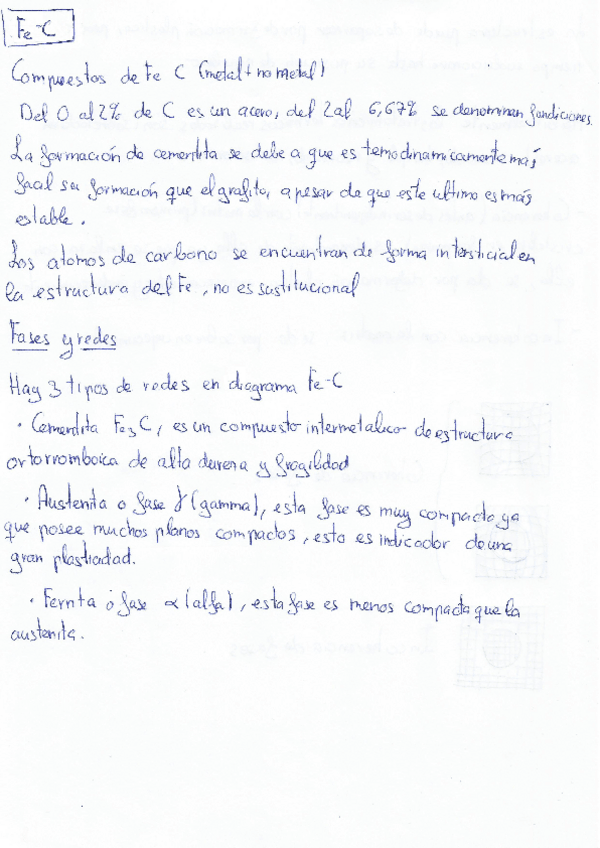 Fe-C
Compuestos de Fe C (metal + no metal)
Del 0 al 2% de C es un acero, del 2 al 6,67% se denominan fundiciones.
La formación de cementita se debe a que es termodinamicamente más
facil su formación que el grafito, a pesar de que este ultimo es más
estable.
Los atomos de carbono se encuentran de forma intersticial en
la estructura del Fe, no es sustitucional
Fases y redes
Hay 3 tipos de redes en diagrama Fe-C
· Cementita Fe3C, es un compuesto intermetalico de estructura
ortorromboica de alta dureza y fragilidad
· Austenita o fase γ (gamma), esta fase es muy compacta ya
que posee muchos planos compactos, esto es indicador de una
gran plasticidad.
· Ferrita o fase α (alfa), esta fase es menos compacta que la
austenita.